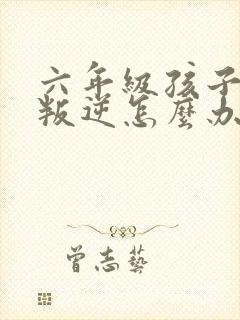 六年級孩子
叛逆怎麼办
曾志藝